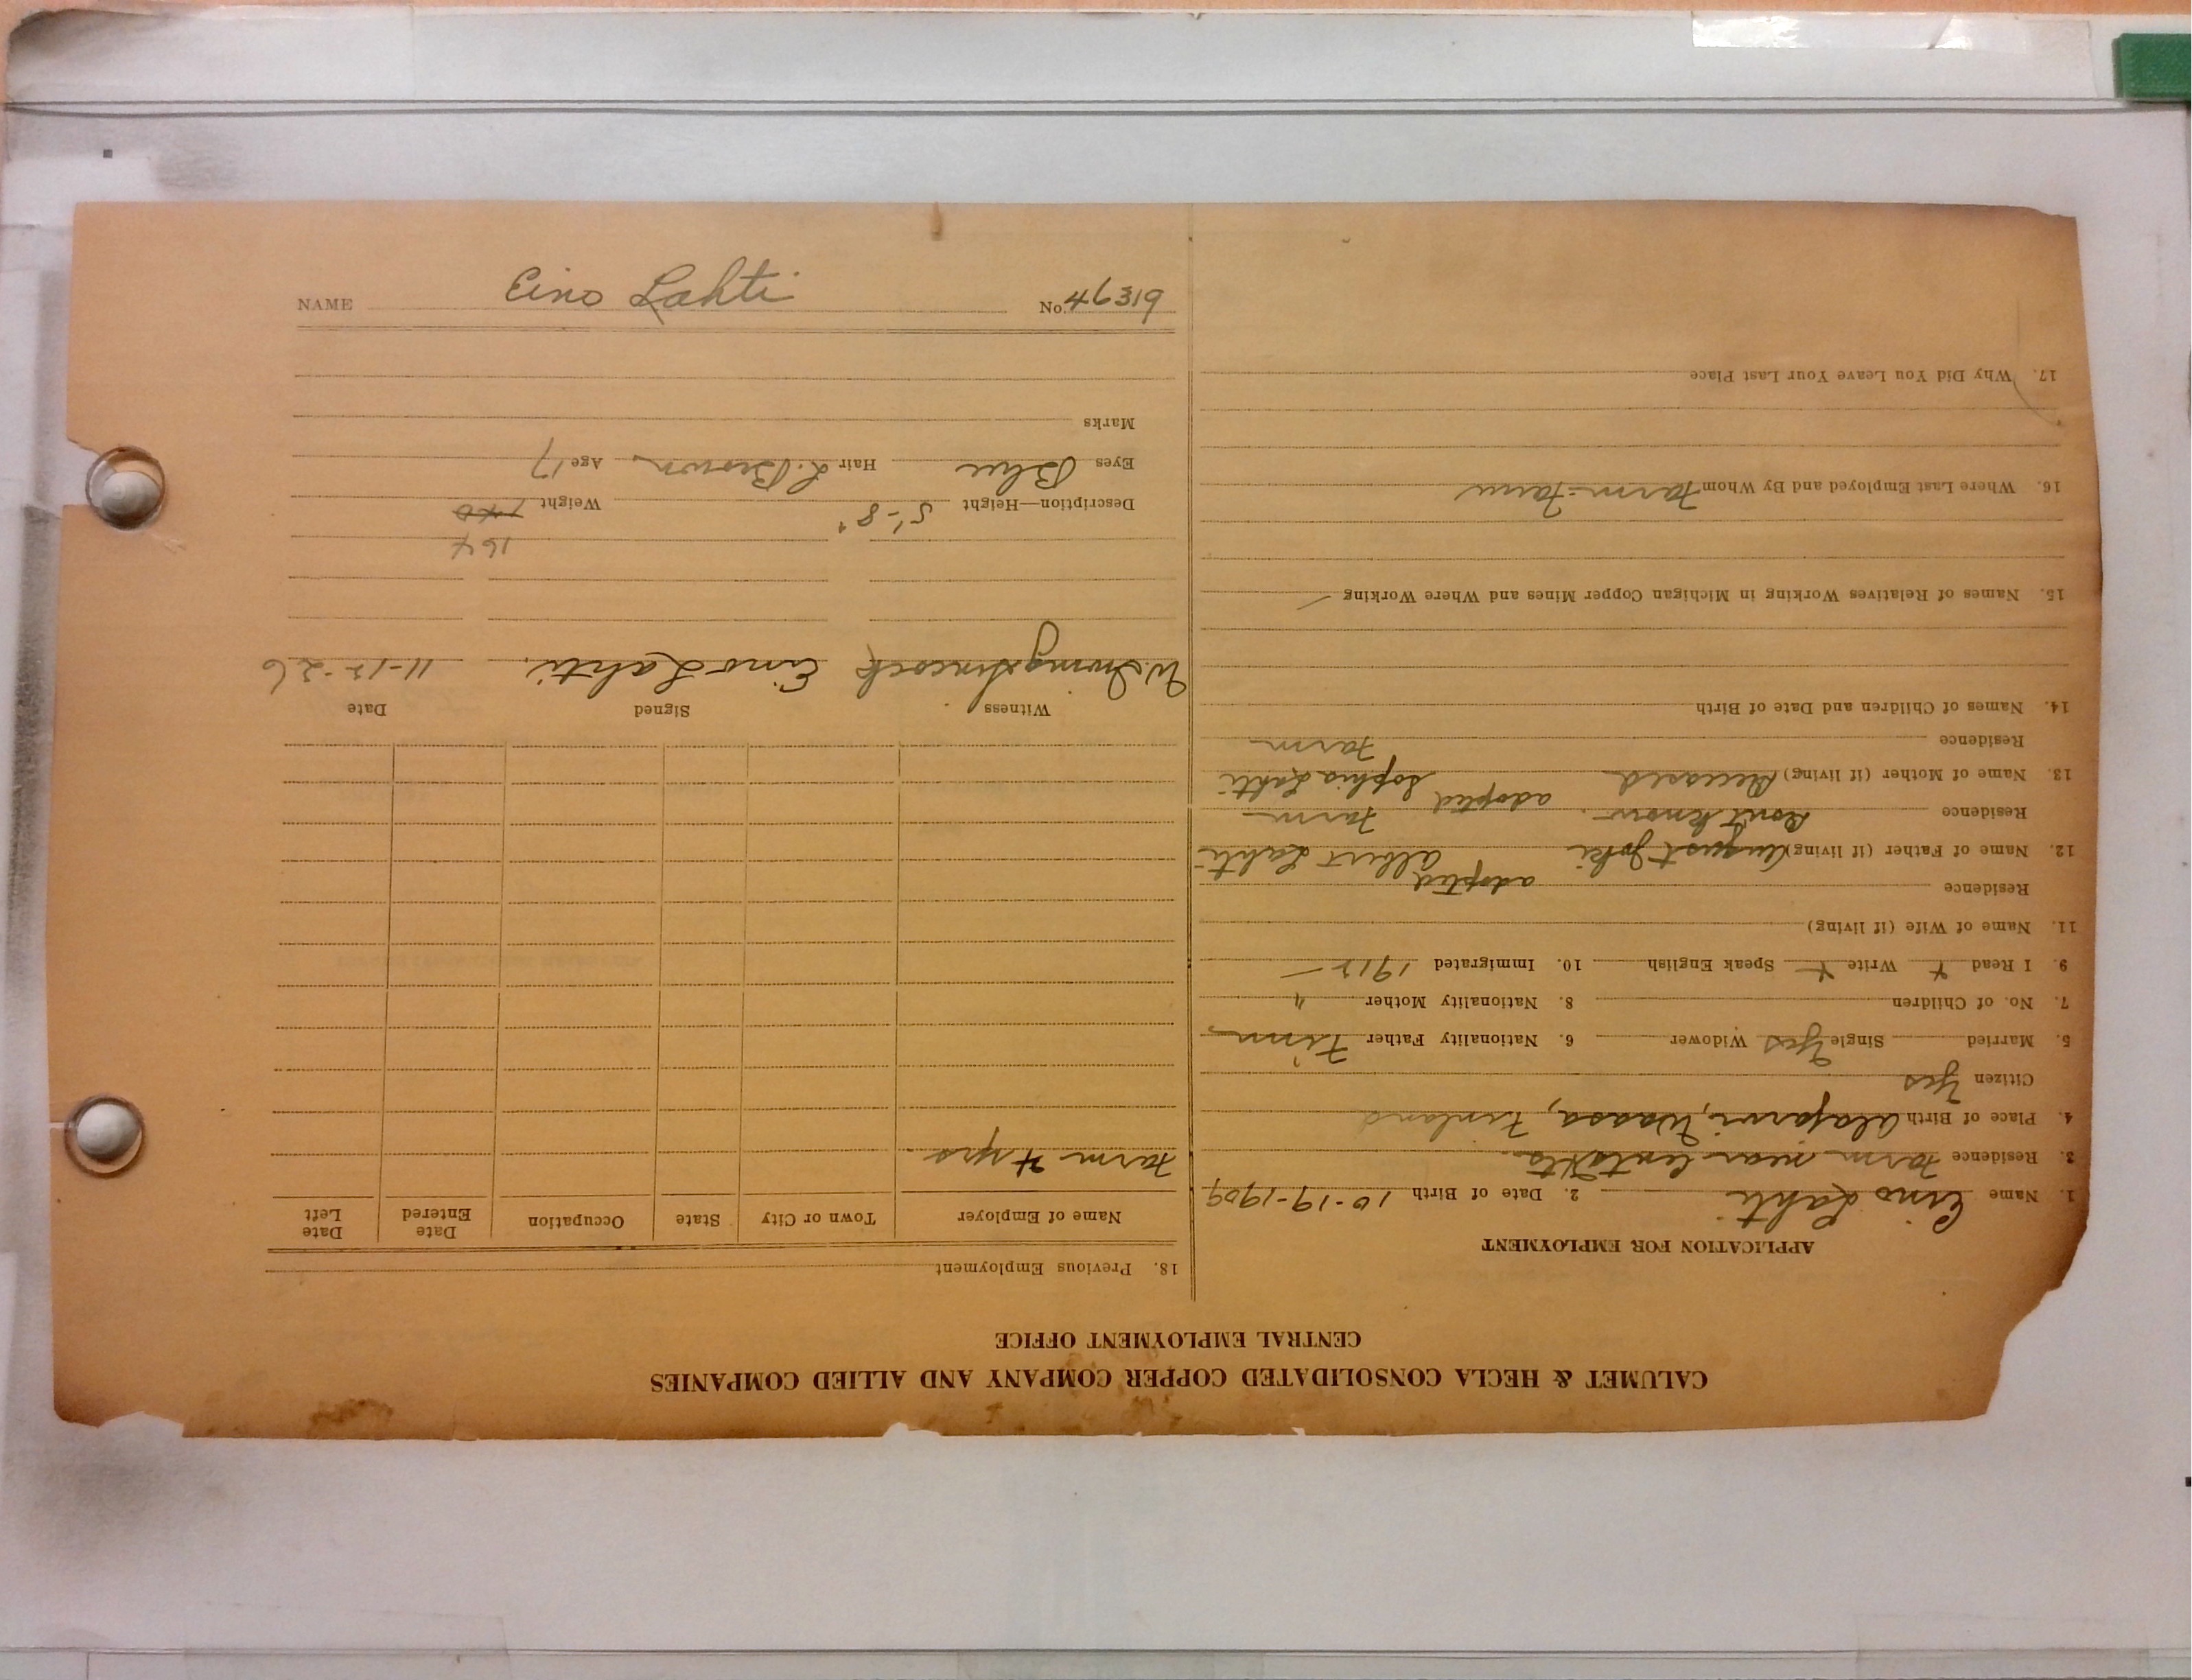 NAME Eino Lahti No. 46319
CALUMET & HECLA CONSOLIDATED COPPER COMPANY AND ALLIED COMPANIES
CENTRAL EMPLOYMENT OFFICE
APPLICATION FOR EMPLOYMENT
1. Name Eino Lahti 2. Date of Birth 10-19-1909
3. Residence Farm near
4. Place of Birth Alajarvi, Waasa, Finland
Citizen Yes
5. Married Single Yes Widower 6. Nationality Father Finn
7. No. of Children 8. Nationality Mother "
9. I Read + Write + Speak English 10. Immigrated 1912
11. Name of Wife (if living)
Residence
adopted
12. Name of Father (if living) August Joki Albert Lahti
Residence Don't know. Farm
adopted
13. Name of Mother (if living) Deceased Sophia Lahti
Residence Farm
14. Names of Children and Date of Birth
15. Names of Relatives Working in Michigan Copper Mines and Where Working
16. Where Last Employed and By Whom Farm
17. Why Did You Leave Your Last Place
18. Previous Employment
Name of Employer Town or City State Occupation Date Entered Date Left
Farm 4 yrs.
Witness Signed Date
W. Irving Eino Lahti. 11-12-26
164
Description—Height 5'-8" Weight 140
Eyes Blue Hair L. Brown Age 17
Marks